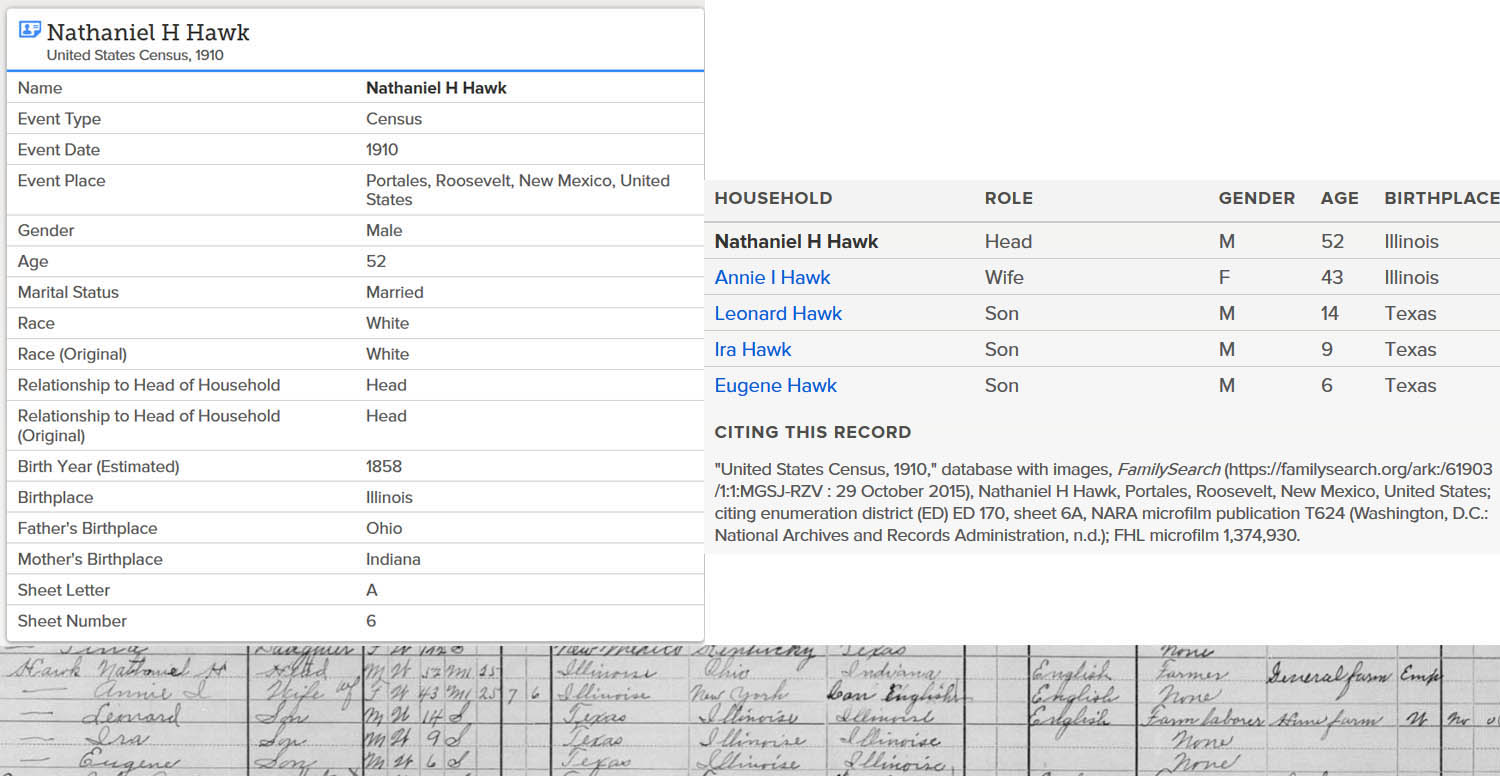 Nathaniel H Hawk
United States Census, 1910
Name Nathaniel H Hawk
Event Type Census
Event Date 1910
Event Place Portales, Roosevelt, New Mexico, United
States
Gender Male
Age 52
Marital Status Married
Race White
Race (Original) White
Relationship to Head of Household Head
Relationship to Head of Household Head
(Original)
Birth Year (Estimated) 1858
Birthplace Illinois
Father's Birthplace Ohio
Mother's Birthplace Indiana
Sheet Letter A
Sheet Number 6
HOUSEHOLD ROLE GENDER AGE BIRTHPLACE
Nathaniel H Hawk Head M 52 Illinois
Annie I Hawk Wife F 43 Illinois
Leonard Hawk Son M 14 Texas
Ira Hawk Son M 9 Texas
Eugene Hawk Son M 6 Texas
CITING THIS RECORD
"United States Census, 1910," database with images, FamilySearch (https://familysearch.org/ark:/61903
/1:1:MGSJ-RZV : 29 October 2015), Nathaniel H Hawk, Portales, Roosevelt, New Mexico, United States;
citing enumeration district (ED) ED 170, sheet 6A, NARA microfilm publication T624 (Washington, D.C.:
National Archives and Records Administration, n.d.); FHL microfilm 1,374,930.
Daughter New Mexico Kentucky Texas None
Hawk Nathaniel H Head M W 52 M1 25 Illinoise Ohio Indiana English Farmer General farm Emp
— Annie I Wife F W 43 M1 25 7 6 Illinoise New York Can English English None
— Leonard Son M W 14 S Texas Illinoise Illinoise English Farm laborer Home farm W No
— Ira Son M W 9 S Texas Illinoise Illinoise None
— Eugene Son M W 6 S Texas Illinoise Illinoise None